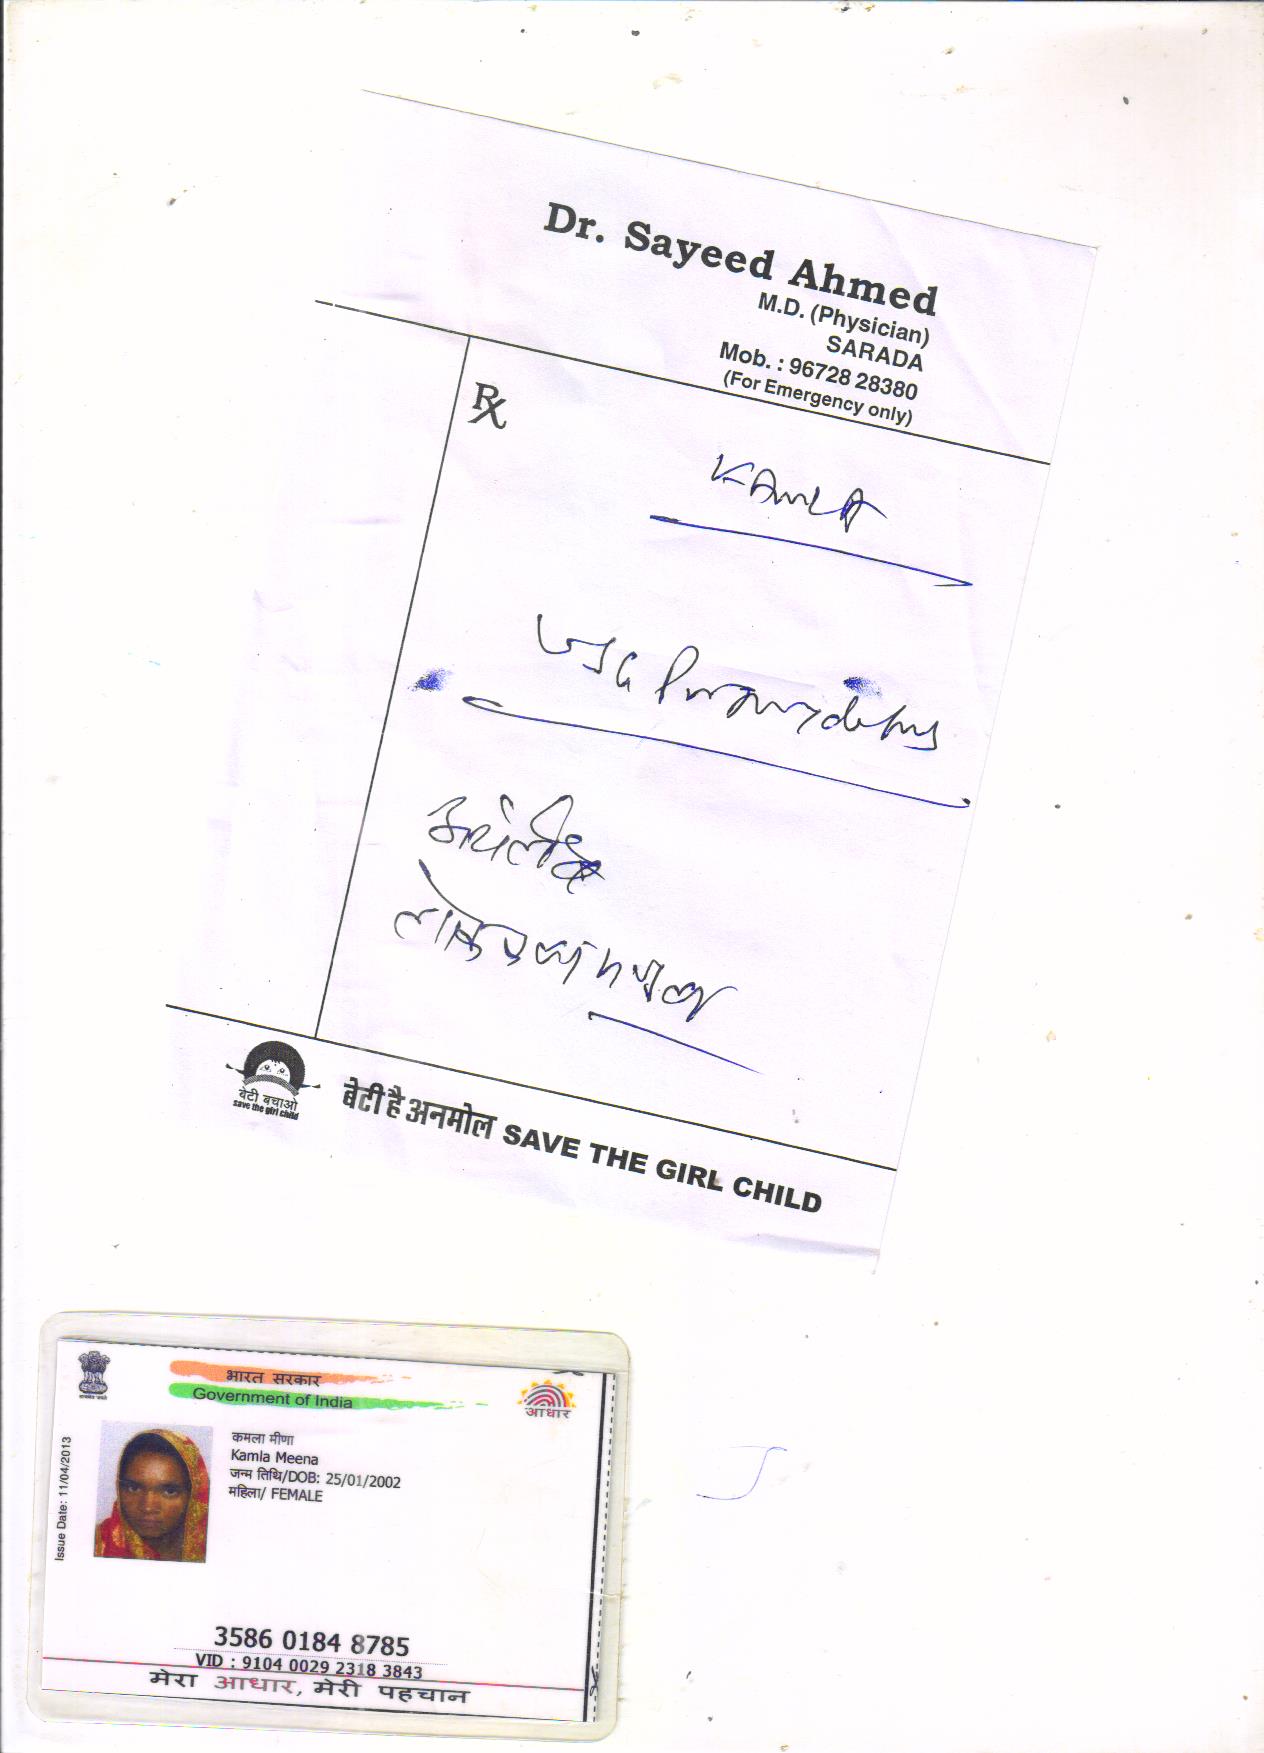 Dr. Sayeed Ahmed
M.D. (Physician)
SARADA
Mob. : 96728 28380
(For Emergency only)
Rx
KAMLA
USG
बेटी बचाओ
save the girl child
बेटी है अनमोल SAVE THE GIRL CHILD
भारत सरकार
Government of India
आधार
Issue Date: 11/04/2013
कमला मीणा
Kamla Meena
जन्म तिथि/DOB: 25/01/2002
महिला/ FEMALE
3586 0184 8785
VID : 9104 0029 2318 3843
मेरा आधार, मेरी पहचान